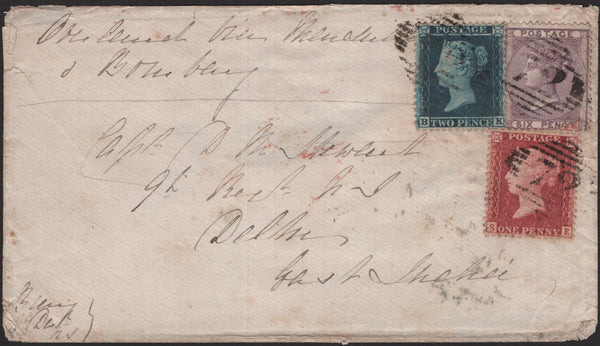 Overland via
& Bombay
POSTAGE
B TWO PENCE K
POSTAGE
SIX PENCE
Capt D M Stewart
POSTAGE
S ONE PENNY E
9th Regt N I
Delhi
East India